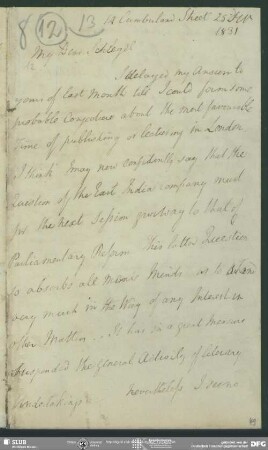 8 (12) 13
14 Cumberland Street 25 Feby
1831
My Dear Schlegel
I delayed my Answer to
yours of last Month till I could form some
probable Conjecture about the most favourable
Time of publishing or lecturing in London
I think I may now confidently say that the
Question of the East India Company must
for the next Session give way to that of
Parliamentary Reform This latter Question
so absorbs all Men's Minds as to
very much in the Way of any Interest in
other Matters... It has in a great Measure
suspended the general Activity of literary
Undertakings
Nevertheless I
SLUB